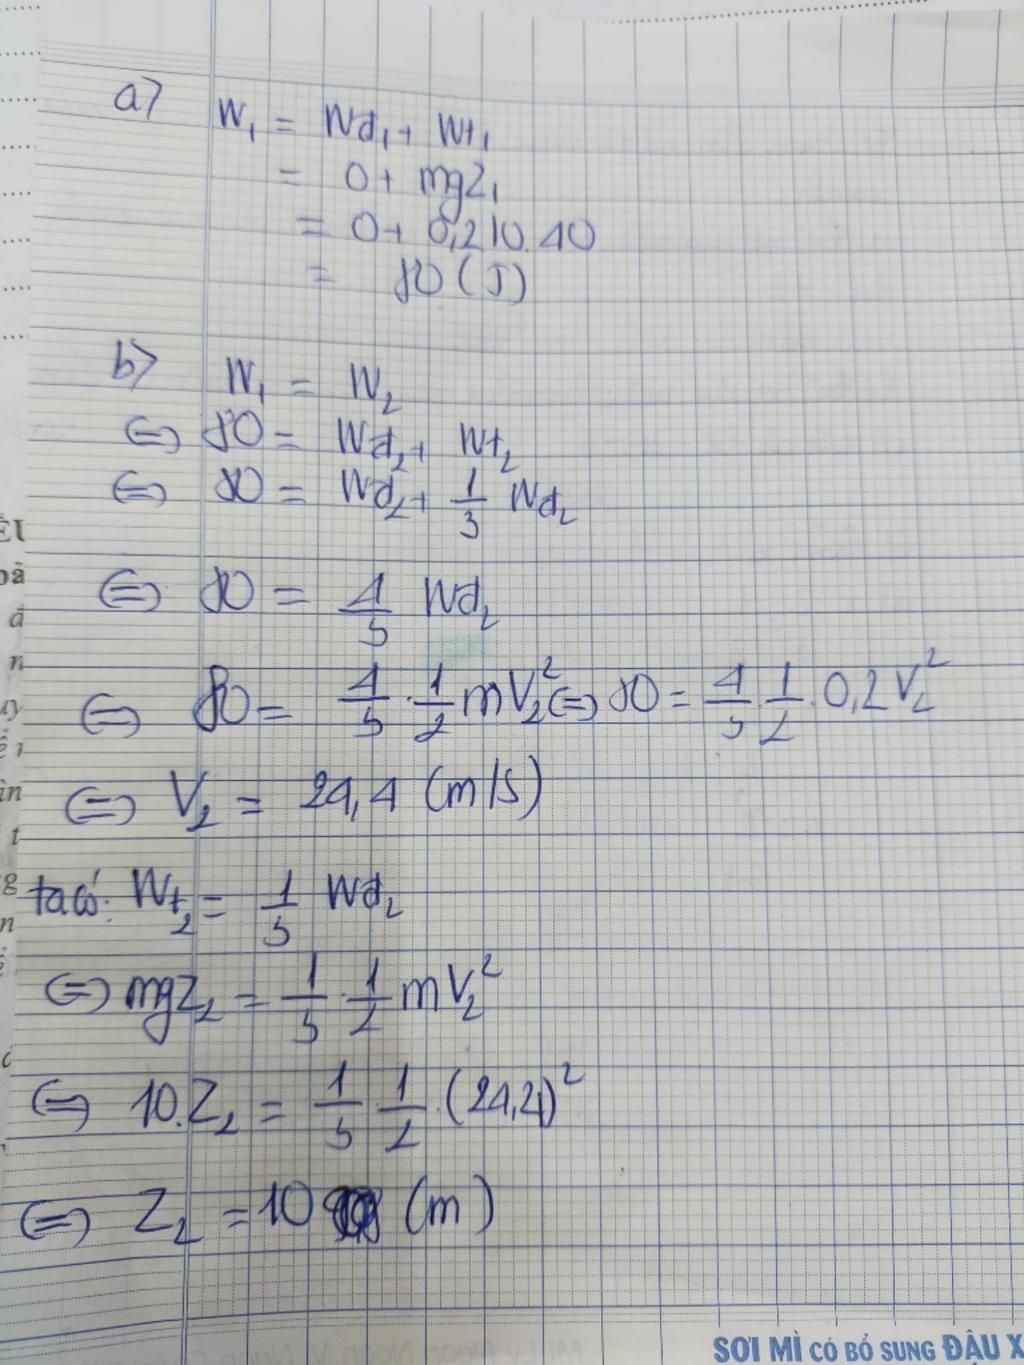 a) W₁ = Wđ₁ + Wt₁
= 0 + mgZ₁
= 0 + 0,2.10.40
= 80 (J)
b) W₁ = W₂
⇔ 80 = Wđ₂ + Wt₂
⇔ 80 = Wđ₂ + 1/3 Wđ₂
⇔ 80 = 4/3 Wđ₂
⇔ 80 = 4/3 . 1/2 mV₂² ⇔ 80 = 4/3 . 1/2 . 0,2V₂²
⇔ V₂ = 24,4 (m/s)
ta có: Wt₂ = 1/3 Wđ₂
⇔ mgZ₂ = 1/3 . 1/2 mV₂²
⇔ 10.Z₂ = 1/3 . 1/2 . (24,4)²
⇔ Z₂ = 10 (m)
SỢI MÌ CÓ BỔ SUNG ĐẬU X